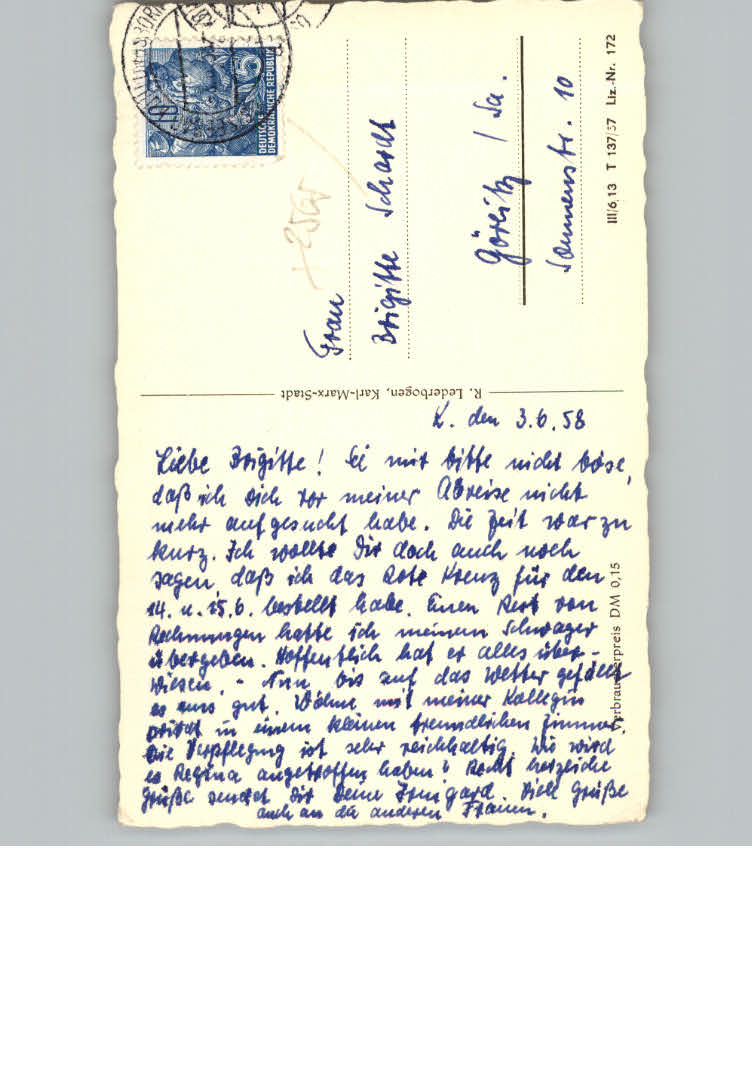 DEUTSCHE
DEMOKRATISCHE REPUBLIK
10
Frau
Brigitte Schardt
Görlitz / Sa.
Sonnenstr. 10
III/6,13 T 137/57 Liz.-Nr. 172
R. Lederbogen, Karl-Marx-Stadt
K. den 3.6.58
Liebe Brigitte! Sei mir bitte nicht böse,
daß ich dich vor meiner Abreise nicht
mehr aufgesucht habe. Die Zeit war zu
kurz. Ich wollte Dir doch auch noch
sagen, daß ich das Rote Kreuz für den
14. u. 15.6. bestellt habe. Einen Rest von
Rechnungen hatte ich meinem Schwager
übergeben. Hoffentlich hat er alles über-
wiesen. - Nun bis auf das Wetter gefällt
es uns gut. Wohne mit meiner Kollegin
privat in einem kleinen freundlichen Zimmer.
Die Verpflegung ist sehr reichhaltig. Wie wird
es Regina angetroffen haben? Recht herzliche
Grüße sendet Dir Deine Irmgard. Viele Grüße
auch an die anderen Frauen.
Verbraucherpreis DM 0,15